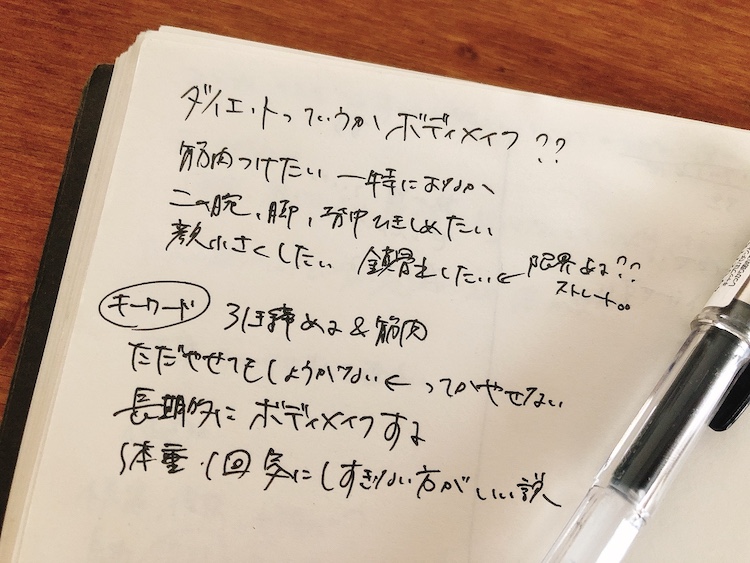 ダイエットっていうか ボディメイク??
筋肉つけたい ー特におなか
二の腕、脚、背中ひきしめたい
顔小さくしたい 鎖骨出したい← 限界ある??
ストレート。。
キーワード 引き締める&筋肉
ただやせてもしょうがない← ってかやせない
長期的に ボディメイクする
体重、1回気にしすぎない方がいい説